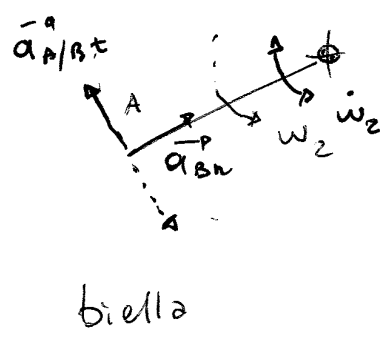 a A/B t
A
a Bn
ω2
ω̇2
biella